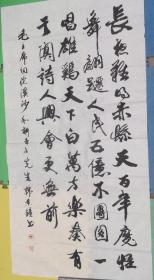 長夜難明赤縣天百年魔怪
舞翩躚人民五億不團圓一
唱雄鷄天下白萬方樂奏有
于闐詩人興會更無前
毛主席詞浣溪沙和柳亞子先生